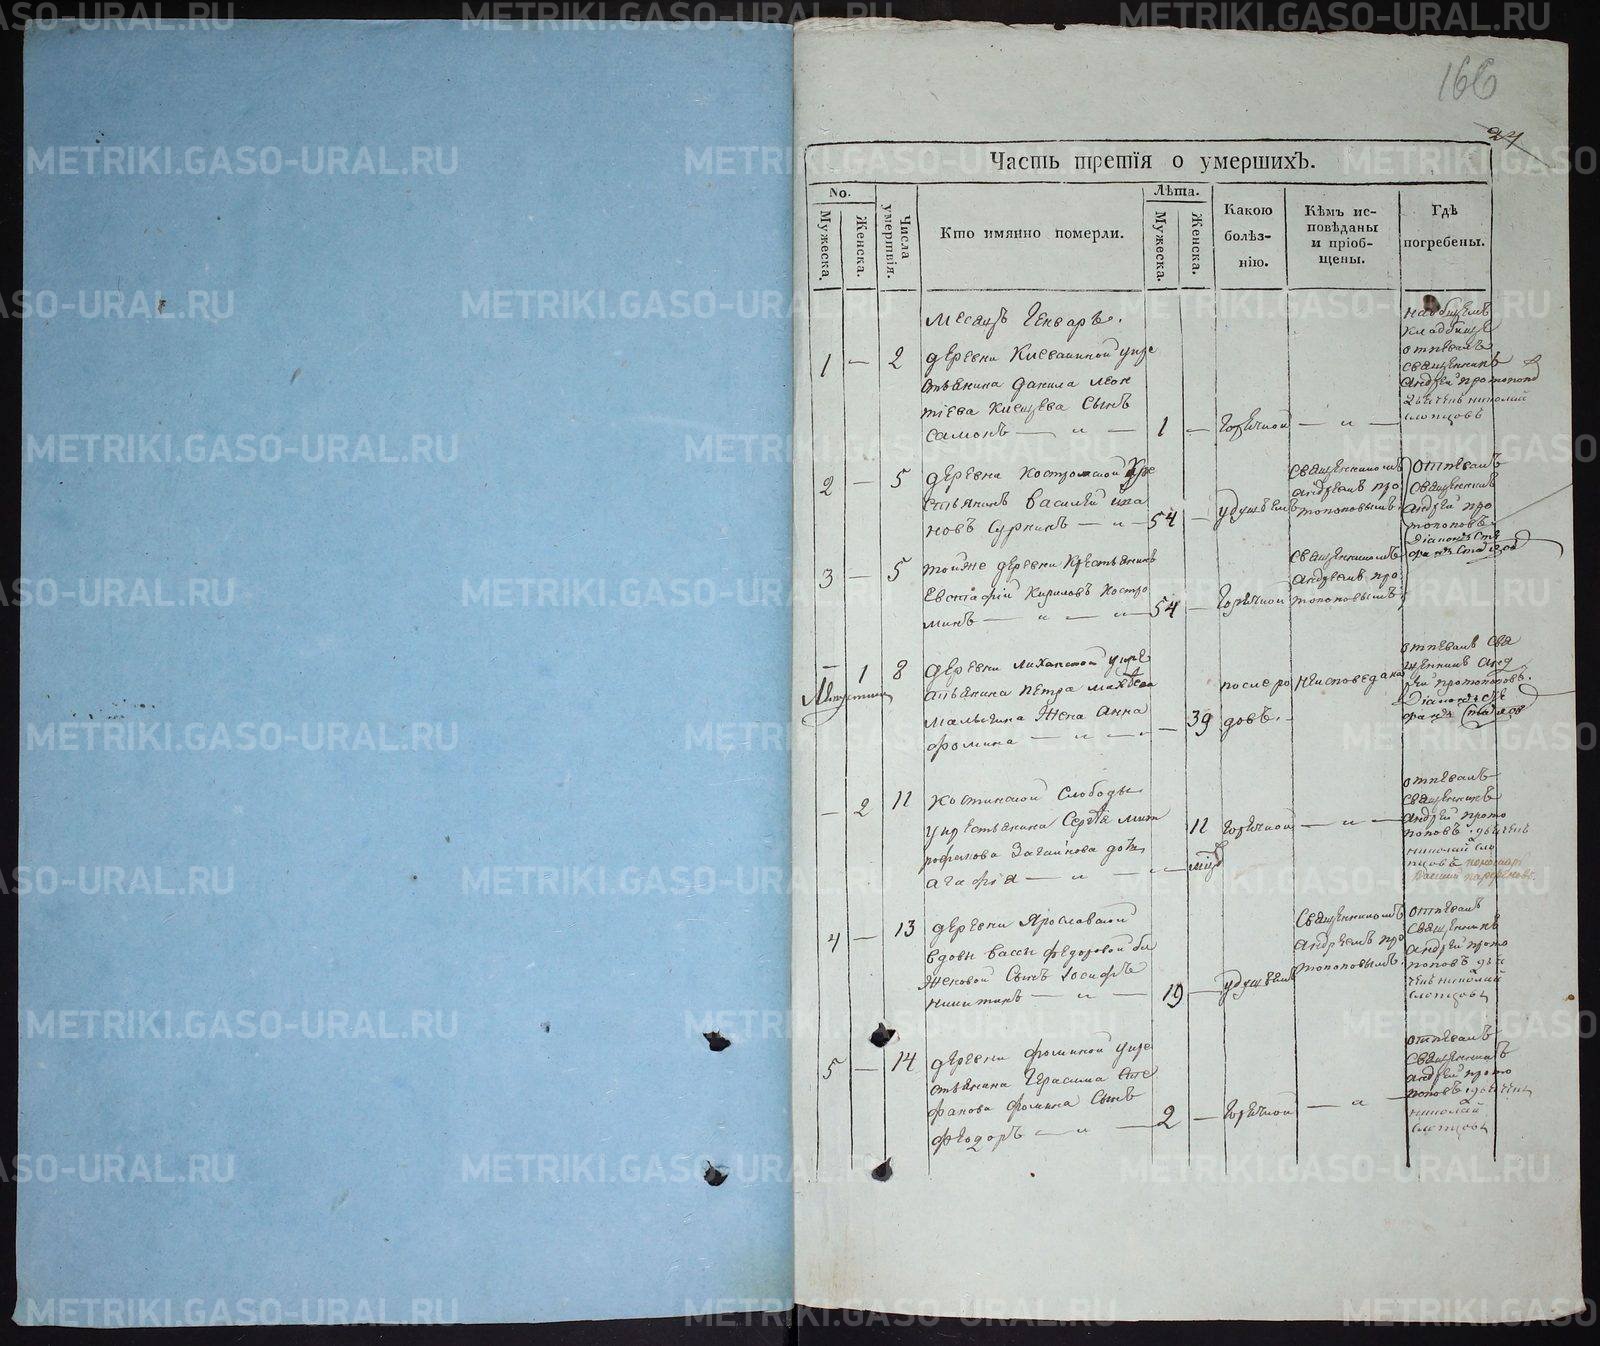 166
27
Часть третія о умершихъ.
No.
Мужеска.
Женска.
Числа умертвія.
Кто имянно померли.
Лѣта.
Мужеска.
Женска.
Какою болѣз-нію.
Кѣмъ ис-повѣданы и пріоб-щены.
Гдѣ погребены.
месяцъ Генваръ.
1 — 2
деревни
стьянина данила леон
тіева сынъ
самонъ — 1 — горячкой — „ —
на общемъ
кладбище
отпевалъ
священникъ
андрей протопопо
дьячекъ николай
слопцовъ
2 — 5 деревни костромской кре
стьянинъ василей ива
новъ суркинъ — „ — 54 — удушьемъ
священникомъ
андреемъ про
топоповымъ
отпевалъ
священникъ
андрей про
топоповъ
діаконъ сте
фанъ
3 — 5 тойже деревни крестьянинъ
евстафій кириловъ костро
минъ — „ — „ — 54 — горячкой
священникомъ
андреемъ про
топоповымъ
— 1 8 деревни
стьянина петра матвеева
малыгина жена анна
фомина — „ — 39
после ро
довъ.
неисповедана
отпевалъ свя
щенникъ анд
рей протопоповъ.
діаконъ сте
фанъ
— 2 11 костинской слободы
у крестьянина сергея мит
рофанова дочь
агафія — „ — 11
горячкой — „ —
отпевалъ
священникъ
андрей прото
поповъ дьячекъ
николай сло
пцовъ
4 — 13 деревни ярославской
вдовы вассы федоровой
сынъ іосифъ
никитинъ — „ — 19 — удушьемъ
священникомъ
андреемъ про
топоповымъ.
отпевалъ
священникъ
андрей прото
поповъ дья
чекъ николай
слопцовъ
5 — 14 деревни фоминой у кре
стьянина герасима сте
фанова фомина сынъ
феодоръ — „ — 2 — горячкой — „ —
отпевалъ
священникъ
андрей прото
поповъ дьячекъ
николай
слопцовъ
METRIKI.GASO-URAL.RU